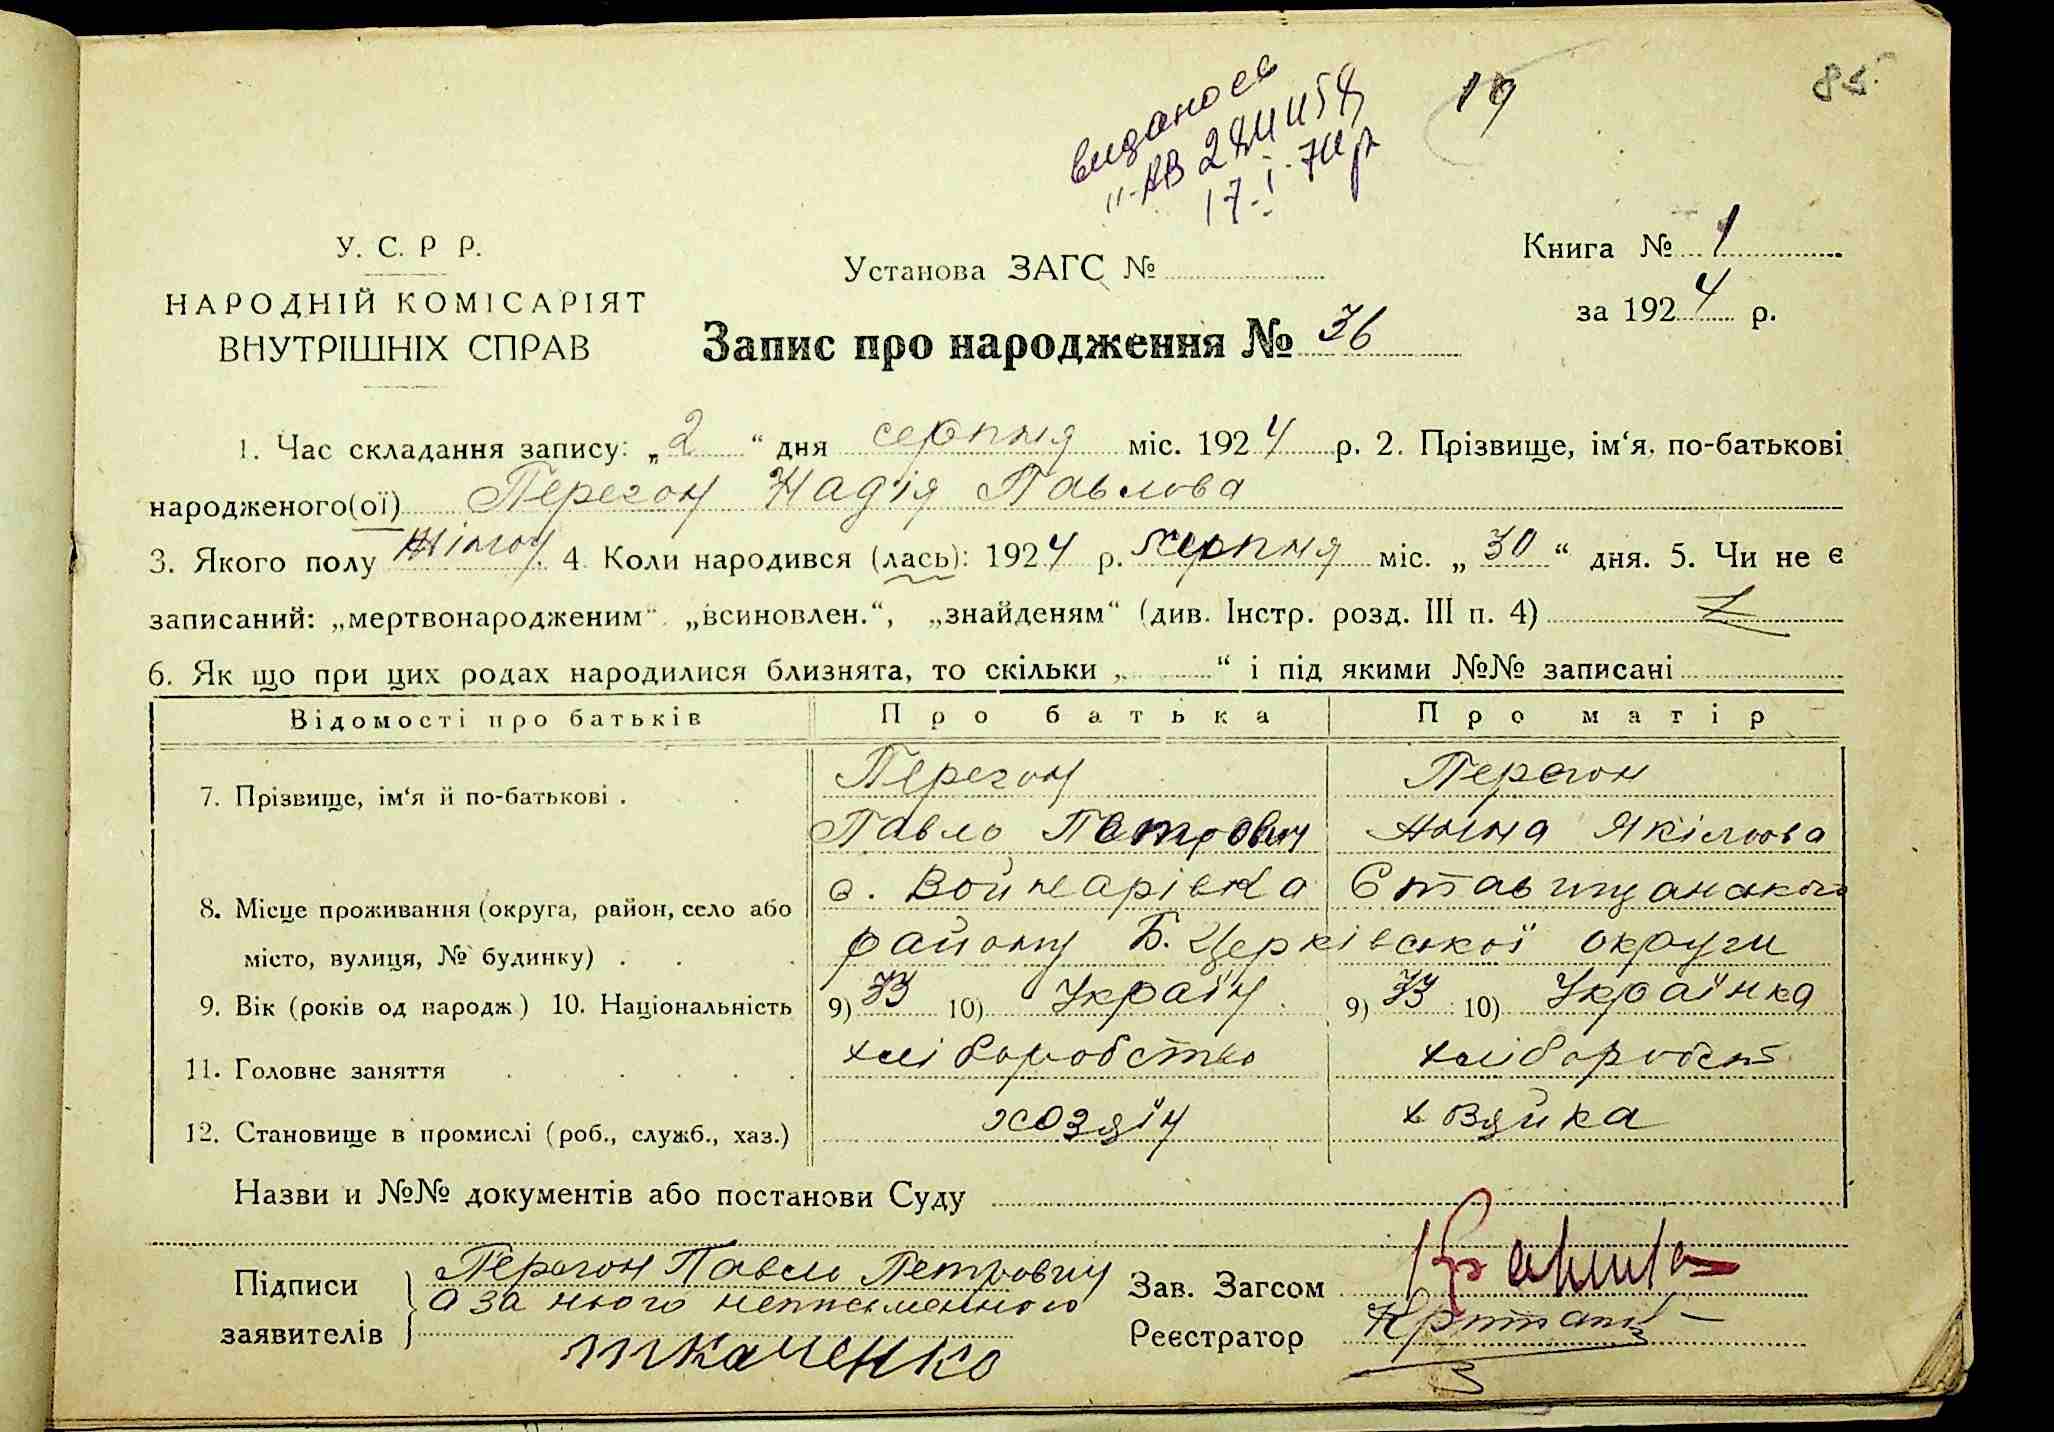 видано св
19
85.
У. С. Р Р.
НАРОДНІЙ КОМІСАРІЯТ
ВНУТРІШНІХ СПРАВ
Установа ЗАГС №
Запис про народження № 36
Книга № 1
за 1924 р.
1. Час складання запису: „2“ дня серпня міс. 1924 р. 2. Прізвище, ім‘я, по-батькові
народженого(ої) Перегон Надія Павлова
3. Якого полу жіноч. 4. Коли народився (лась): 1924 р. серпня міс. „30“ дня. 5. Чи не є
записаний: „мертвонародженим“ „всиновлен.“, „знайденям“ (див. Інстр. розд. III п. 4)
6. Як що при цих родах народилися близнята, то скільки „ “ і під якими №№ записані
Відомості про батьків Про батька Про матір
7. Прізвище, ім‘я й по-батькові . Перегон Перегон
Павло Петрович Анна Якімова
8. Місце проживання (округа, район, село або с. Войнарівка Ставищанського
місто, вулиця, № будинку) . району Б. Церківської округи
9. Вік (років од народж) 10. Національність 9) 33 10) Україн. 9) 33 10) Українка
11. Головне заняття хліборобство хліборобст
12. Становище в промислі (роб., служб., хаз.) хозяїн хозяйка
Назви и №№ документів або постанови Суду
Підписи Перегон Павло Петрович Зав. Загсом
а за нього неписьменного
заявителів Ткаченко Реєстратор